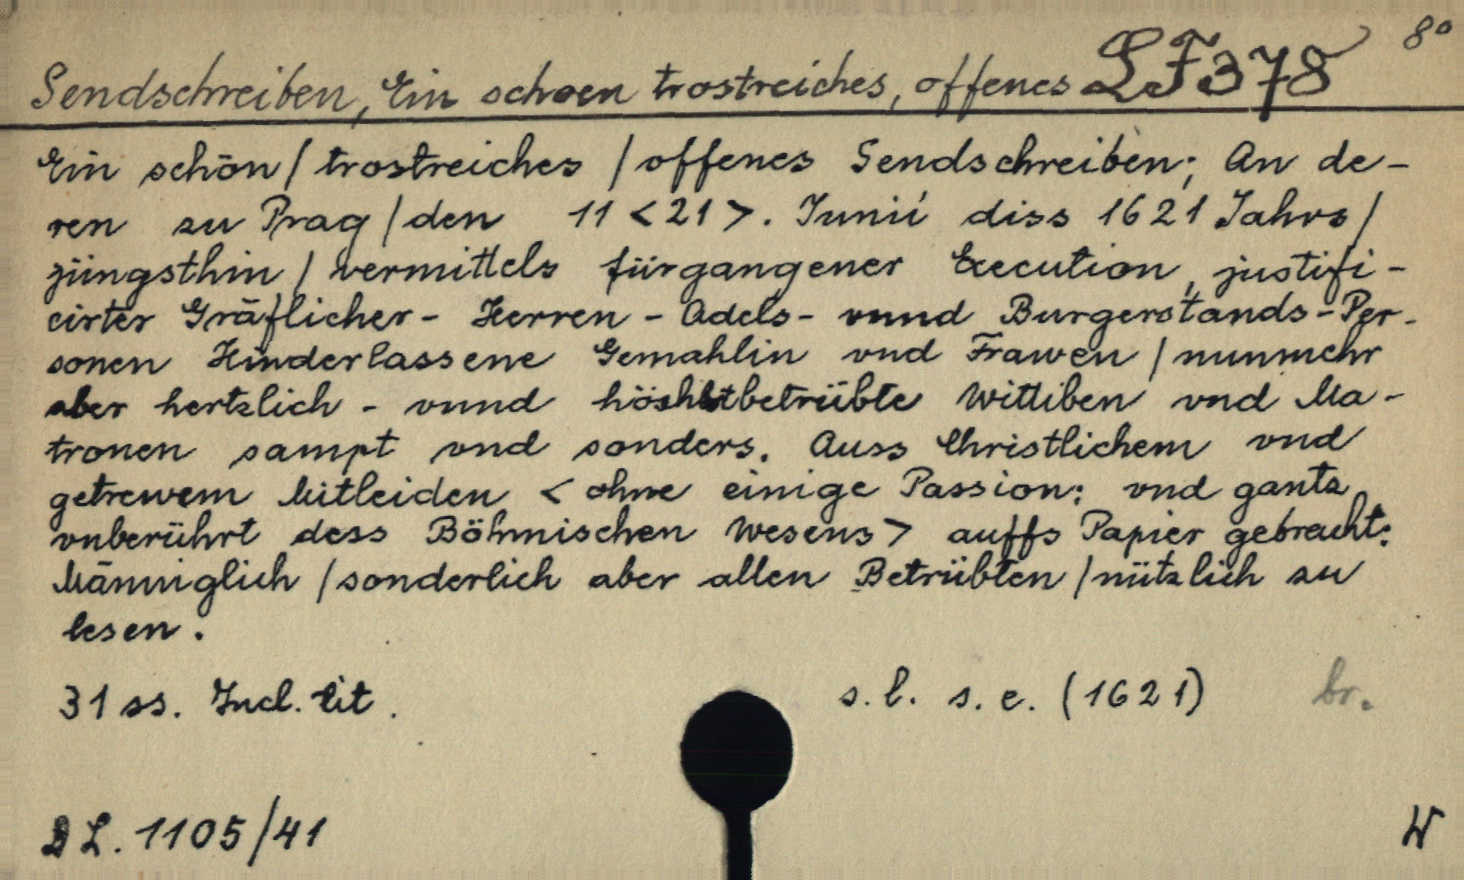 8°
Sendschreiben, Ein schoen trostreiches, offenes LF378
Ein schön / trostreiches / offenes Sendschreiben; An de-
ren zu Prag / den 11 <21>. Junii diss 1621 Jahrs /
jüngsthin / vermittels fürgangener Execution, justifi-
cirter Gräflicher- Herren - Adels- vnnd Burgerstands-Per-
sonen Hinderlassene Gemahlin vnd Frawen / nunmehr
aber hertzlich - vnnd höchstbetrübte Wittiben vnd Ma-
tronen sampt vnd sonders. Auss Christlichem vnd
getrewem Mitleiden < ohne einige Passion: vnd gantz
vnberührt dess Böhmischen Wesens> auffs Papier gebracht:
Männiglich / sonderlich aber allen Betrübten / nützlich zu
lesen.
31 ss. Incl. tit. s. l. s. e. (1621) br.
L. 1105/41 W